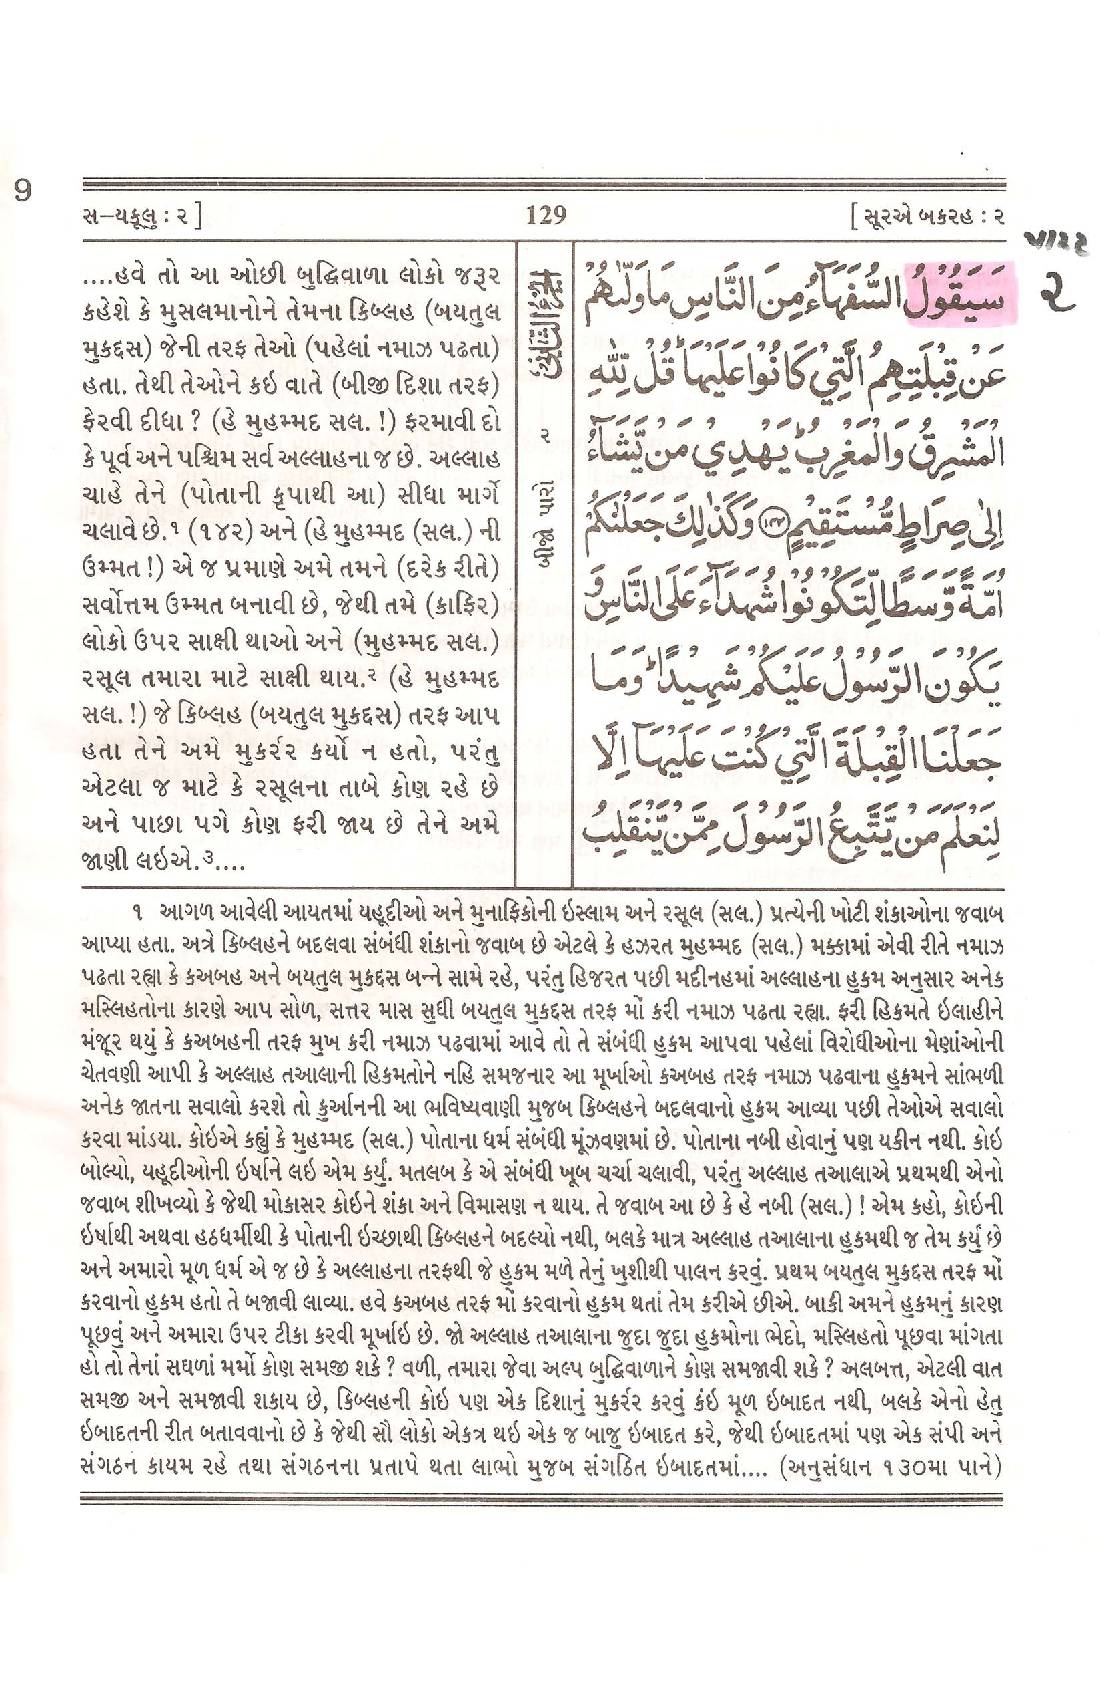 9
સ-યકૂલુ : ૨ ]
129
[ સૂરએ બકરહ : ૨
પારહ
૨
سَيَقُوْلُ السُّفَهَآءُ مِنَ النَّاسِ مَا وَلّٰىهُمْ
عَنْ قِبْلَتِهِمُ الَّتِيْ كَانُوْا عَلَيْهَا ؕ قُلْ لِّلّٰهِ
الْمَشْرِقُ وَالْمَغْرِبُ ؕ يَهْدِيْ مَنْ يَّشَآءُ
اِلٰى صِرَاطٍ مُّسْتَقِيْمٍ ۝۱۴۲ وَكَذٰلِكَ جَعَلْنٰكُمْ
اُمَّةً وَّسَطًا لِّتَكُوْنُوْا شُهَدَآءَ عَلَى النَّاسِ وَ
يَكُوْنَ الرَّسُوْلُ عَلَيْكُمْ شَهِيْدًا ؕ وَمَا
جَعَلْنَا الْقِبْلَةَ الَّتِيْ كُنْتَ عَلَيْهَآ اِلَّا
لِنَعْلَمَ مَنْ يَّتَّبِعُ الرَّسُوْلَ مِمَّنْ يَّنْقَلِبُ
الجزء الثاني
બીજો પારો ૨
....હવે તો આ ઓછી બુદ્ધિવાળા લોકો જરૂર
કહેશે કે મુસલમાનોને તેમના કિબ્લહ (બયતુલ
મુકદ્દસ) જેની તરફ તેઓ (પહેલાં નમાઝ પઢતા)
હતા. તેથી તેઓને કઇ વાતે (બીજી દિશા તરફ)
ફેરવી દીધા ? (હે મુહમ્મદ સલ. !) ફરમાવી દો
કે પૂર્વ અને પશ્ચિમ સર્વ અલ્લાહના જ છે. અલ્લાહ
ચાહે તેને (પોતાની કૃપાથી આ) સીધા માર્ગે
ચલાવે છે.૧ (૧૪૨) અને (હે મુહમ્મદ (સલ.) ની
ઉમ્મત !) એ જ પ્રમાણે અમે તમને (દરેક રીતે)
સર્વોત્તમ ઉમ્મત બનાવી છે, જેથી તમે (કાફિર)
લોકો ઉપર સાક્ષી થાઓ અને (મુહમ્મદ સલ.)
રસૂલ તમારા માટે સાક્ષી થાય.૨ (હે મુહમ્મદ
સલ. !) જે કિબ્લહ (બયતુલ મુકદ્દસ) તરફ આપ
હતા તેને અમે મુકર્રર કર્યો ન હતો, પરંતુ
એટલા જ માટે કે રસૂલના તાબે કોણ રહે છે
અને પાછા પગે કોણ ફરી જાય છે તેને અમે
જાણી લઇએ.૩....
૧ આગળ આવેલી આયતમાં યહૂદીઓ અને મુનાફિકોની ઇસ્લામ અને રસૂલ (સલ.) પ્રત્યેની ખોટી શંકાઓના જવાબ
આપ્યા હતા. અત્રે કિબ્લહને બદલવા સંબંધી શંકાનો જવાબ છે એટલે કે હઝરત મુહમ્મદ (સલ.) મક્કામાં એવી રીતે નમાઝ
પઢતા રહ્યા કે કઅબહ અને બયતુલ મુકદ્દસ બન્ને સામે રહે, પરંતુ હિજરત પછી મદીનહમાં અલ્લાહના હુકમ અનુસાર અનેક
મસ્લિહતોના કારણે આપ સોળ, સત્તર માસ સુધી બયતુલ મુકદ્દસ તરફ મોં કરી નમાઝ પઢતા રહ્યા. ફરી હિકમતે ઇલાહીને
મંજૂર થયું કે કઅબહની તરફ મુખ કરી નમાઝ પઢવામાં આવે તો તે સંબંધી હુકમ આપવા પહેલાં વિરોધીઓના મેણાંઓની
ચેતવણી આપી કે અલ્લાહ તઆલાની હિકમતોને નહિ સમજનાર આ મૂર્ખાઓ કઅબહ તરફ નમાઝ પઢવાના હુકમને સાંભળી
અનેક જાતના સવાલો કરશે તો કુર્આનની આ ભવિષ્યવાણી મુજબ કિબ્લહને બદલવાનો હુકમ આવ્યા પછી તેઓએ સવાલો
કરવા માંડયા. કોઇએ કહ્યું કે મુહમ્મદ (સલ.) પોતાના ધર્મ સંબંધી મૂંઝવણમાં છે. પોતાના નબી હોવાનું પણ યકીન નથી. કોઇ
બોલ્યો, યહૂદીઓની ઇર્ષાને લઇ એમ કર્યું. મતલબ કે એ સંબંધી ખૂબ ચર્ચા ચલાવી, પરંતુ અલ્લાહ તઆલાએ પ્રથમથી એનો
જવાબ શીખવ્યો કે જેથી મોકાસર કોઇને શંકા અને વિમાસણ ન થાય. તે જવાબ આ છે કે હે નબી (સલ.) ! એમ કહો, કોઇની
ઇર્ષાથી અથવા હઠધર્મીથી કે પોતાની ઇચ્છાથી કિબ્લહને બદલ્યો નથી, બલકે માત્ર અલ્લાહ તઆલાના હુકમથી જ તેમ કર્યું છે
અને અમારો મૂળ ધર્મ એ જ છે કે અલ્લાહના તરફથી જે હુકમ મળે તેનું ખુશીથી પાલન કરવું. પ્રથમ બયતુલ મુકદ્દસ તરફ મોં
કરવાનો હુકમ હતો તે બજાવી લાવ્યા. હવે કઅબહ તરફ મોં કરવાનો હુકમ થતાં તેમ કરીએ છીએ. બાકી અમને હુકમનું કારણ
પૂછવું અને અમારા ઉપર ટીકા કરવી મૂર્ખાઇ છે. જો અલ્લાહ તઆલાના જુદા જુદા હુકમોના ભેદો, મસ્લિહતો પૂછવા માંગતા
હો તો તેનાં સઘળાં મર્મો કોણ સમજી શકે ? વળી, તમારા જેવા અલ્પ બુદ્ધિવાળાને કોણ સમજાવી શકે ? અલબત્ત, એટલી વાત
સમજી અને સમજાવી શકાય છે, કિબ્લહની કોઇ પણ એક દિશાનું મુકર્રર કરવું કંઇ મૂળ ઇબાદત નથી, બલકે એનો હેતુ
ઇબાદતની રીત બતાવવાનો છે કે જેથી સૌ લોકો એકત્ર થઇ એક જ બાજુ ઇબાદત કરે, જેથી ઇબાદતમાં પણ એક સંપી અને
સંગઠન કાયમ રહે તથા સંગઠનના પ્રતાપે થતા લાભો મુજબ સંગઠિત ઇબાદતમાં.... (અનુસંધાન ૧૩૦મા પાને)